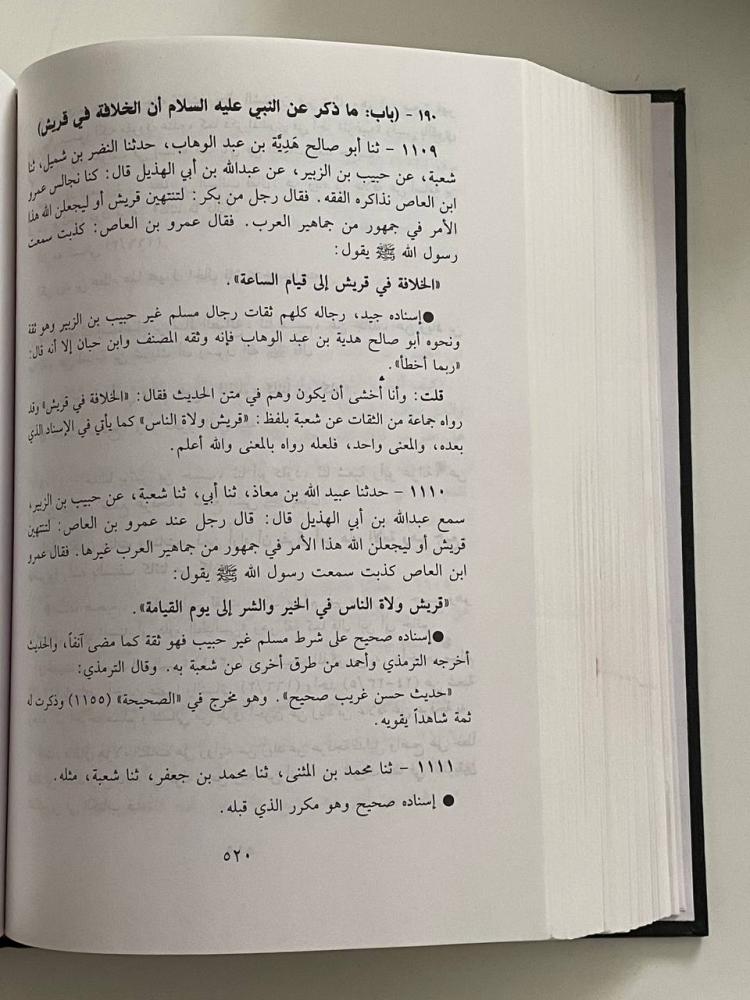 ١٩٠ - (باب: ما ذكر عن النبي عليه السلام أن الخلافة في قريش)
١١٠٩ - ثنا أبو صالح هَدِيَّة بن عبد الوهاب، حدثنا النضر بن شميل، ثنا
شعبة، عن حبيب بن الزبير، عن عبدالله بن أبي الهذيل قال: كنا نجالس عمرو
ابن العاص نذاكره الفقه. فقال رجل من بكر: لتنتهين قريش أو ليجعلن الله هذا
الأمر في جمهور من جماهير العرب. فقال عمرو بن العاص: كذبت سمعت
رسول الله ﷺ يقول:
«الخلافة في قريش إلى قيام الساعة».
●إسناده جيد، رجاله كلهم ثقات رجال مسلم غير حبيب بن الزبير وهو ثقة
ونحوه أبو صالح هدية بن عبد الوهاب فإنه وثقه المصنف وابن حبان إلا أنه قال:
«ربما أخطأ».
قلت: وأنا أخشى أن يكون وهم في متن الحديث فقال: «الخلافة في قريش» وقد
رواه جماعة من الثقات عن شعبة بلفظ: «قريش ولاة الناس» كما يأتي في الإسناد الذي
بعده، والمعنى واحد، فلعله رواه بالمعنى والله أعلم.
١١١٠ - حدثنا عبيد الله بن معاذ، ثنا أبي، ثنا شعبة، عن حبيب بن الزبير،
سمع عبدالله بن أبي الهذيل قال: قال رجل عند عمرو بن العاص: لتنتهين
قريش أو ليجعلن الله هذا الأمر في جمهور من جماهير العرب غيرها. فقال عمرو
ابن العاص كذبت سمعت رسول الله ﷺ يقول:
«قريش ولاة الناس في الخير والشر إلى يوم القيامة».
●إسناده صحيح على شرط مسلم غير حبيب فهو ثقة كما مضى آنفاً، والحديث
أخرجه الترمذي وأحمد من طرق أخرى عن شعبة به. وقال الترمذي:
«حديث حسن غريب صحيح». وهو مخرج في «الصحيحة» (١١٥٥) وذكرت له
ثمة شاهداً يقويه.
١١١١ - ثنا محمد بن المثنى، ثنا محمد بن جعفر، ثنا شعبة، مثله.
● إسناده صحيح وهو مكرر الذي قبله.
٥٢٠